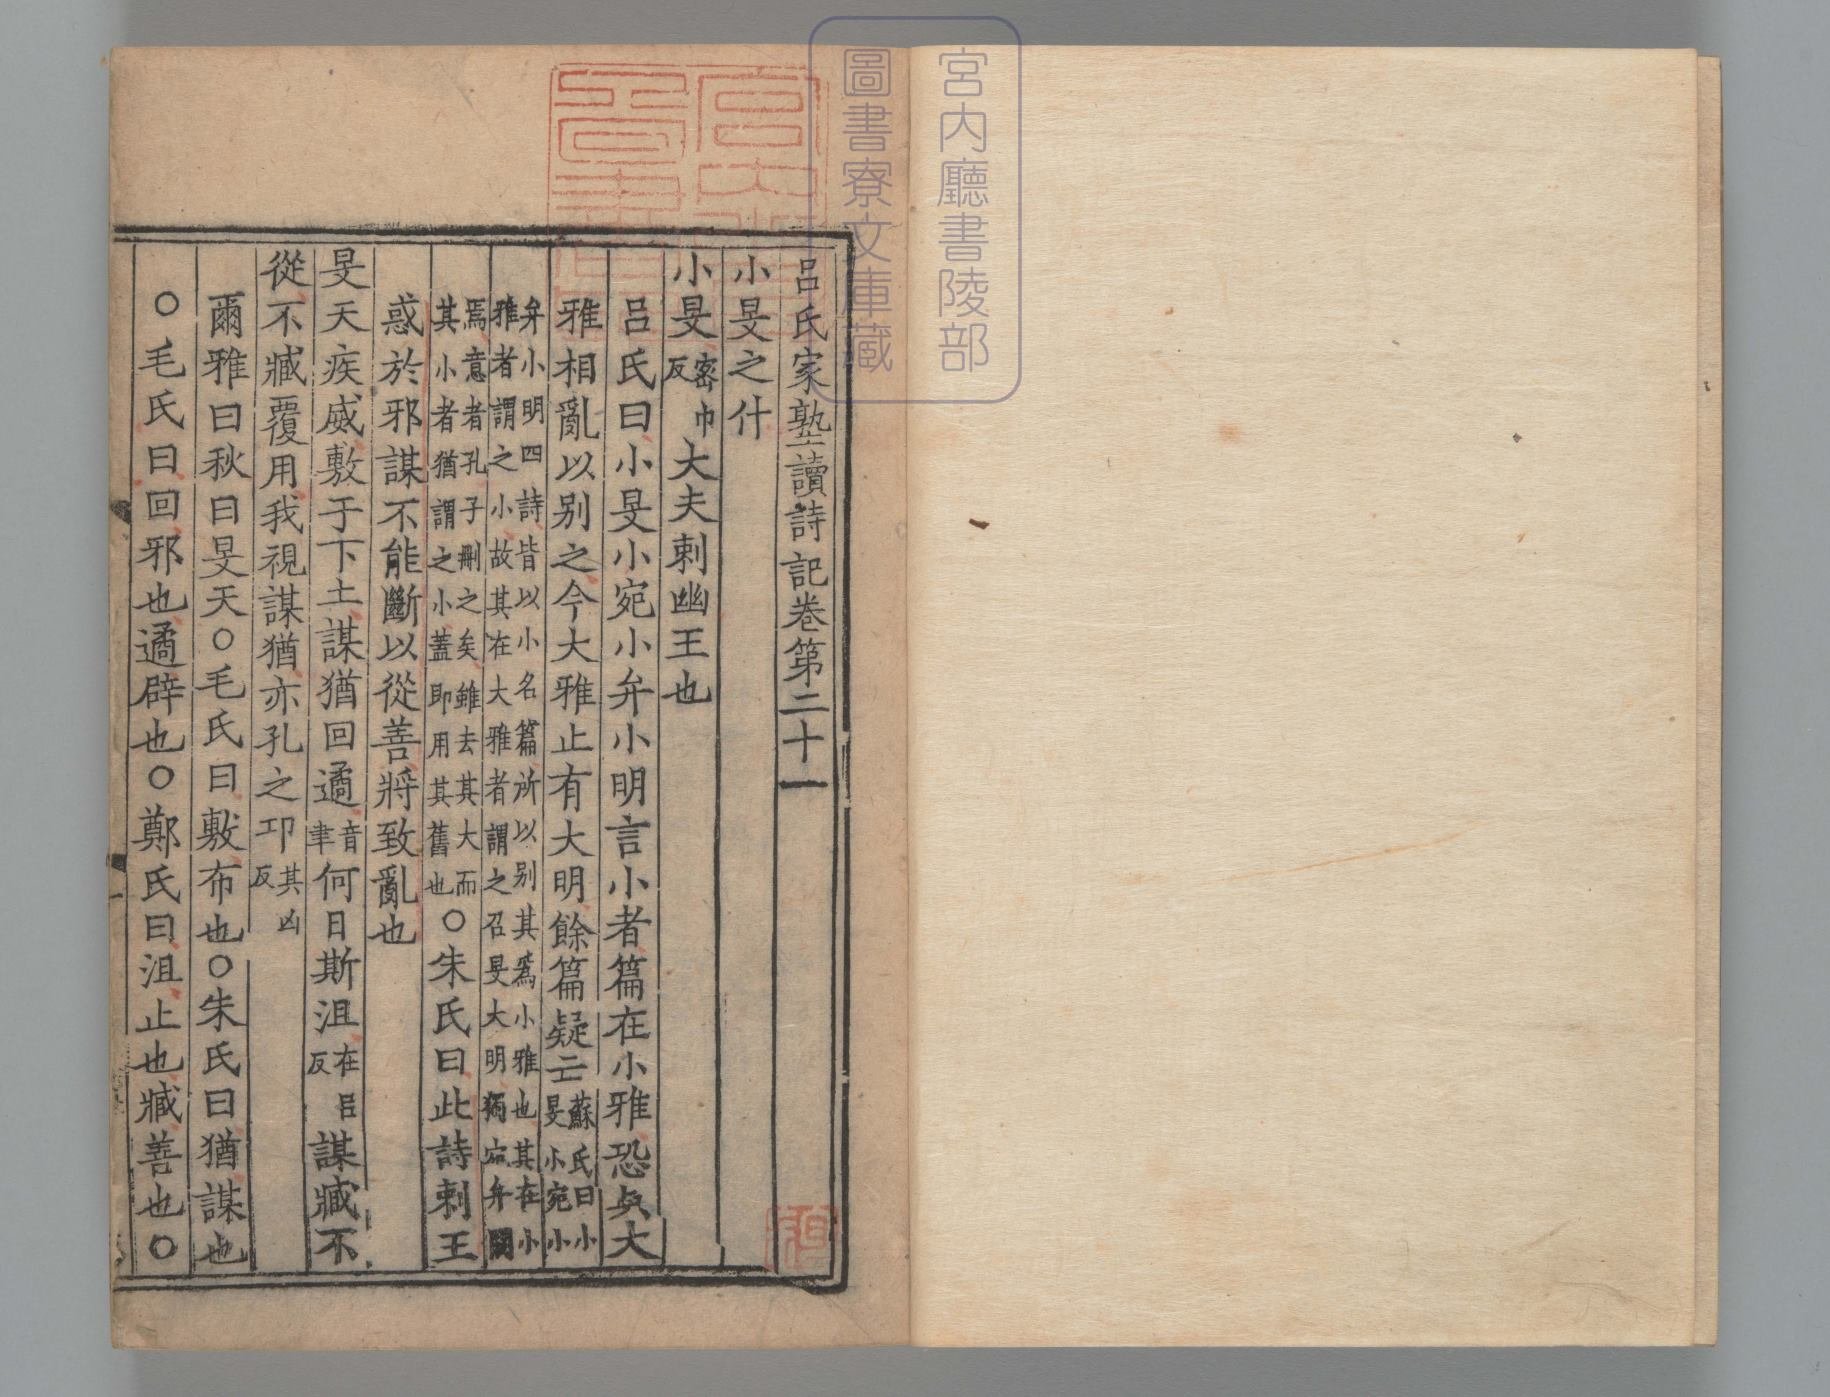 宮内廳書陵部
圖書寮文庫藏
呂氏家塾讀詩記卷第二十一
小旻之什
小旻密巾反大夫刺幽王也
呂氏曰小旻小宛小弁小明言小者篇在小雅恐與大
雅相亂以别之今大雅止有大明餘篇疑亡蘇氏曰小旻小宛小
弁小明四詩皆以小名篇所以别其爲小雅也其在小
雅者謂之小故其在大雅者謂之召旻大明獨宛弁闕
焉意者孔子刪之矣雖去其大而
其小者猶謂之小蓋即用其舊也○朱氏曰此詩刺王
惑於邪謀不能斷以從善將致亂也
旻天疾威敷于下土謀猶回遹音聿何日斯沮在呂反謀臧不
從不臧覆用我視謀猶亦孔之卭其凶反
爾雅曰秋曰旻天○毛氏曰敷布也○朱氏曰猶謀也
○毛氏曰回邪也遹辟也○鄭氏曰沮止也臧善也○